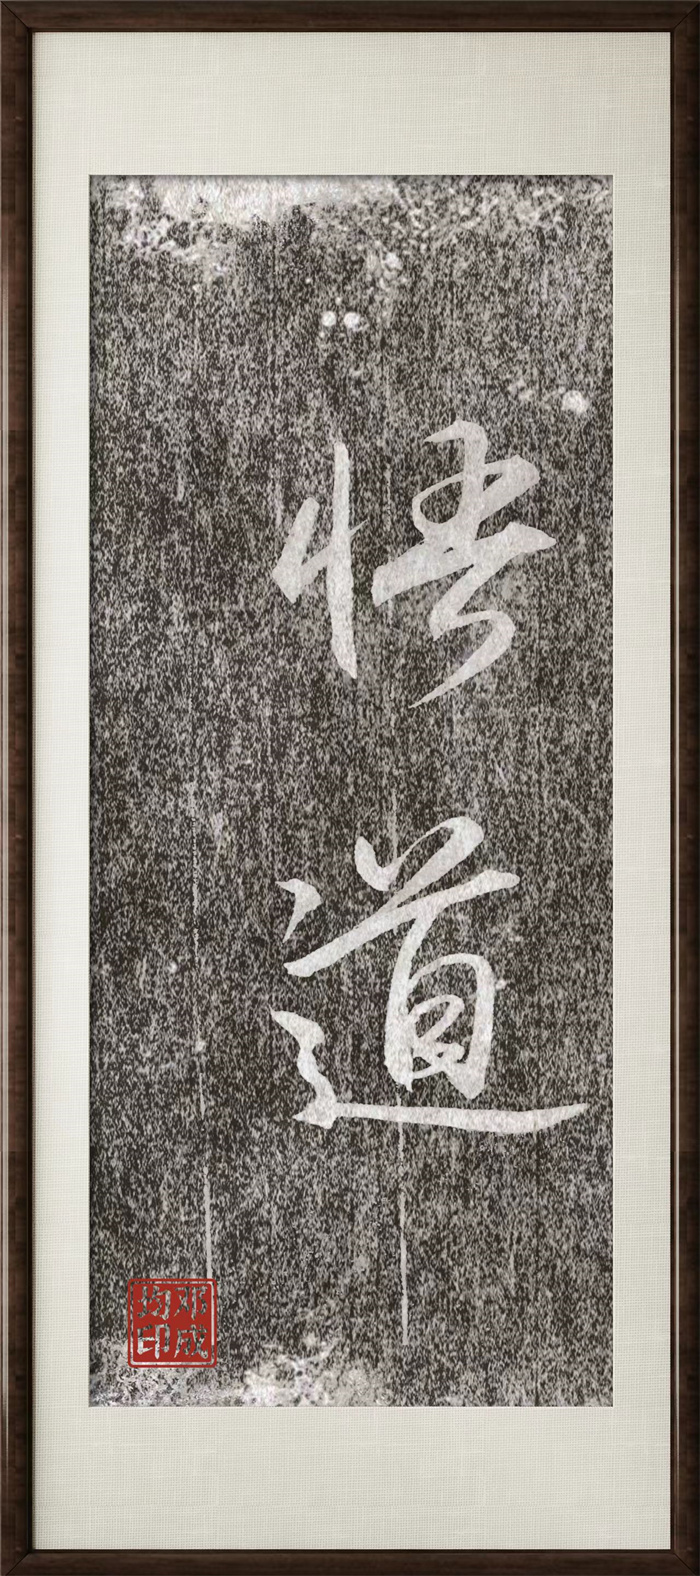 悟道
邓成
均印